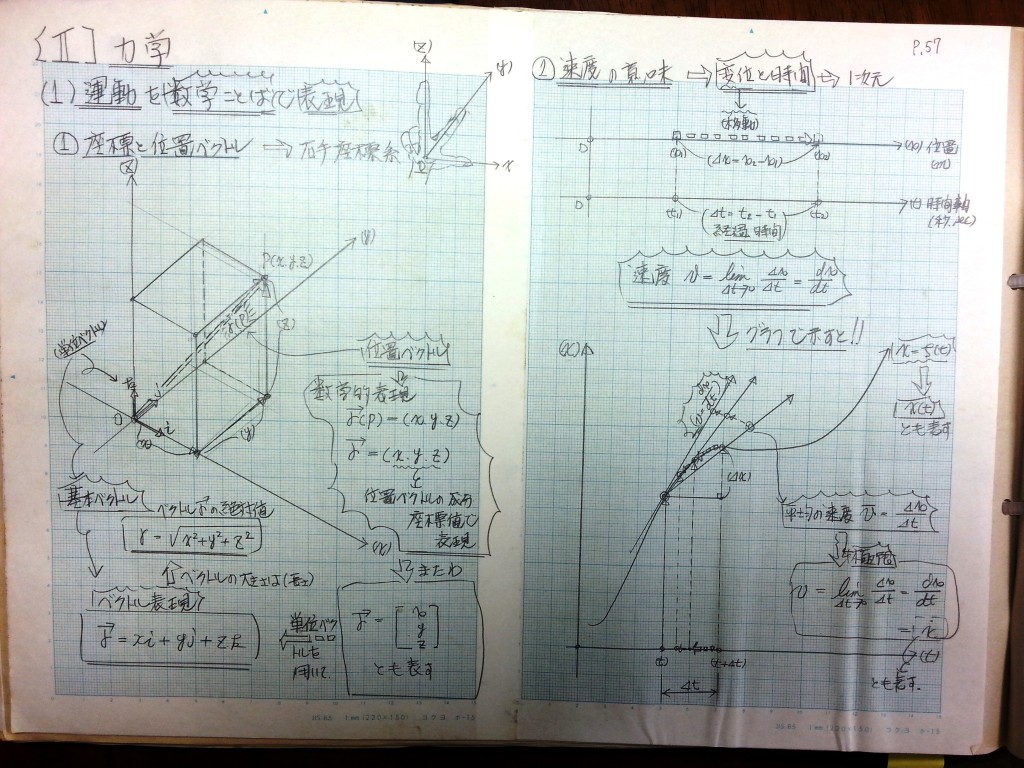 [Ⅱ] 力学
(1) 運動を数学ことばで表現
① 座標と位置ベクトル → 右手座標系
(z)
(y)
x
(z)
(y)
P(x.y.z)
(z)
位置ベクトル
単位ベクトル
k
j
i
O
(x)
(y)
(x)
数学的表現
r(P) = (x.y.z)
r = (x.y.z)
位置ベクトルの成分
座標値で
表現
または
基本ベクトル
ベクトルrの絶対値
r = √x²+y²+z²
ベクトルの大きさは(長さ)
ベクトル表現
r = xi + yj + zk
単位ベク
トルを
用いて
r = [x
y
z]
とも表す
P.57
② 速度の意味 ⇒ 変位と時間 → 1次元
(移動)
O
(x₁)
(Δx = x₂ - x₁)
(x₂)
(x) 位置
(m)
O
(t₁)
(Δt = t₂ - t₁)
経過時間
(t₂)
(t) 時間軸
(秒.sec)
速度 v = lim Δt→0 Δx/Δt = dx/dt
グラフで示すと!!
(x)
x = f(t)
x(t)
とも表す
(Δx)
平均の速度 v = Δx/Δt
極限
v = lim Δt→0 Δx/Δt = dx/dt
= ẋ
とも表す.
(t)
(t+Δt)
(t)
Δt
DS.65 1mm(220×150) コクヨ ホ-15
DS.65 1mm(220×150) コクヨ ホ-15